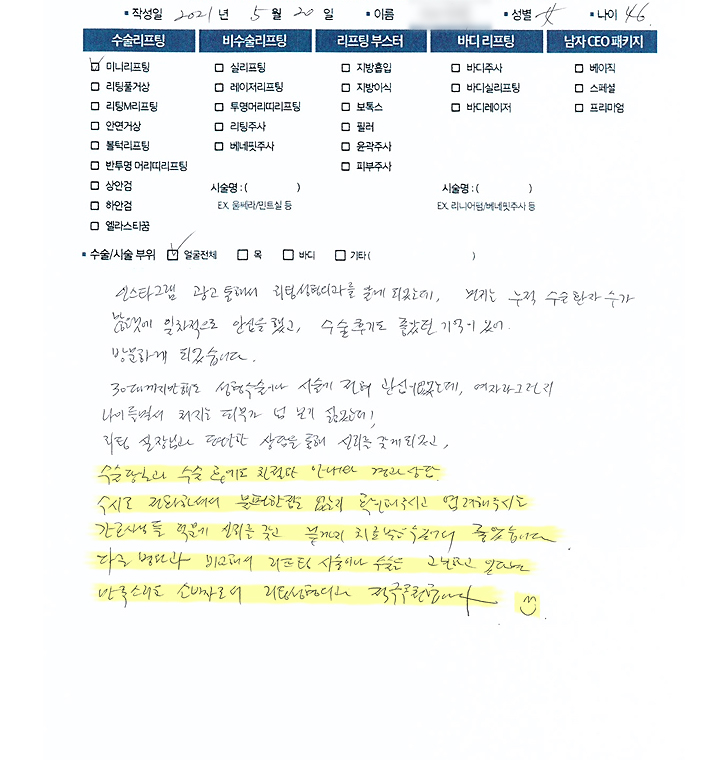 ▪ 작성일 2021 년 5 월 20 일 ▪ 이름 ▪ 성별 女 ▪ 나이 46
수술리프팅 비수술리프팅 리프팅 부스터 바디 리프팅 남자 CEO 패키지
☑ 미니리프팅 □ 실리프팅 □ 지방흡입 □ 바디주사 □ 베이직
□ 리팅풀거상 □ 레이저리프팅 □ 지방이식 □ 바디실리프팅 □ 스페셜
□ 리팅M리프팅 □ 투명머리띠리프팅 □ 보톡스 □ 바디레이저 □ 프리미엄
□ 안면거상 □ 리팅주사 □ 필러
□ 볼턱리프팅 □ 베네핏주사 □ 윤곽주사
□ 반투명 머리띠리프팅 □ 피부주사
□ 상안검 시술명 : ( ) 시술명 : ( )
□ 하안검 EX. 울쎄라/민트실 등 EX. 리니어펌/베네핏주사 등
□ 엘라스티꿈
▪ 수술/시술 부위 ☑ 얼굴전체 □ 목 □ 바디 □ 기타 ( )
인스타그램 광고 통해서 리팅성형외과를 알게 되었는데, 누적 수술환자 수가
일차적으로 안심을 했고, 수술후기도 좋았던 기억이 있어
방문하게 되었습니다.
30대까지만해도 성형수술이나 시술에 전혀 관심이없었는데, 여자라그런지
나이들면서 처지는 피부가 넘 보기 싫었는데,
리팅 실장님과 상담을 통해 신뢰를 갖게되었고,
수술당일과 수술 후에도 친절한 안내와 경과 상담
수시로 전화하셔서 불편한점 없는지 확인해주시고 염려해주시는
간호사님들 덕분에 신뢰를 갖고 치료 좋았습니다
다른 병원과 비교해서 리프팅 시술이나 수술을
만족스러운 소비자로서 리팅성형외과 적극추천합니다